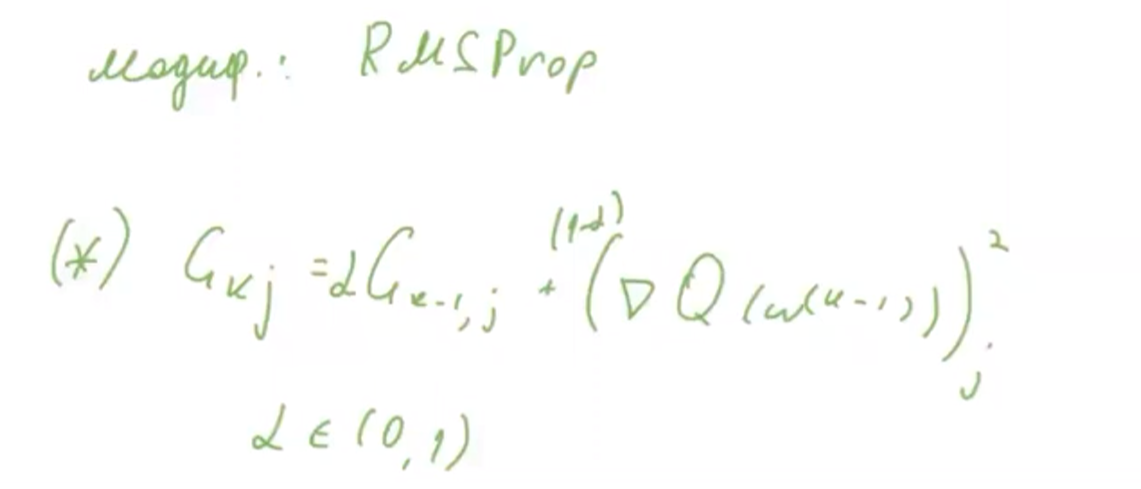 модиф.: RMSProp
(*) G_{kj} = αG_{k-1,j} + (1-α) (∇Q(w^{(k-1)}))_j^2
α ∈ (0,1)